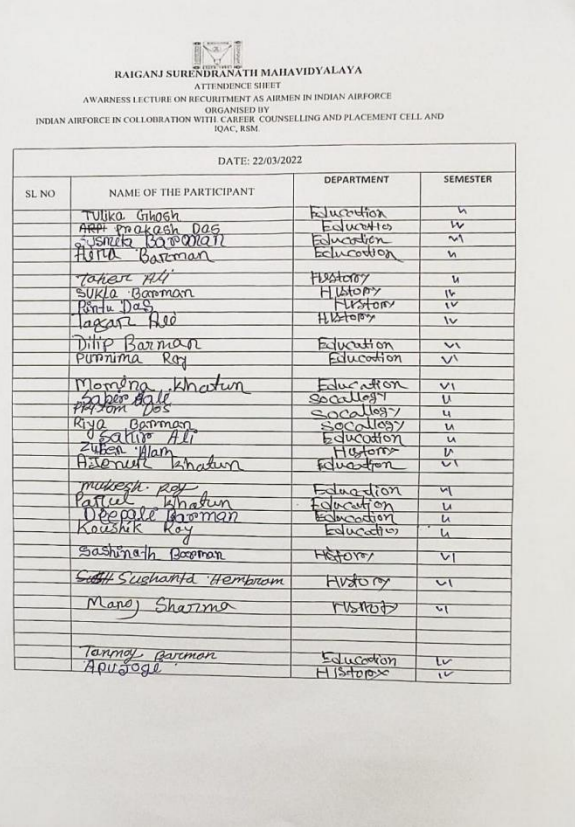 RAIGANJ SURENDRANATH MAHAVIDYALAYA
ATTENDENCE SHEET
AWARNESS LECTURE ON RECURITMENT AS AIRMEN IN INDIAN AIRFORCE
ORGANISED BY
INDIAN AIRFORCE IN COLLOBRATION WITH CAREER COUNSELLING AND PLACEMENT CELL AND
IQAC, RSM
DATE: 22/03/2022
SL NO NAME OF THE PARTICIPANT DEPARTMENT SEMESTER
Tulika Ghosh Education
Prakash Das Education IV
Susmita Barman Education VI
Hena Barman Education
Taher Ali History
Sukla Barman History IV
Pintu Das History IV
History IV
Dilip Barman Education VI
Purnima Roy Education VI
Momina Khatun Education VI
Socallogy
Pritom Das Socallogy
Riya Barman Socallogy
Sakir Ali Education
Zuber Alam History
Khatun Education VI
Mukesh Roy Education VI
Parul Khatun Education
Deepali Barman Education
Koushik Roy Education
Sashinath Barman History VI
Sushanta Hembram History VI
Manoj Sharma History VI
Tanmoy Barman Education IV
History IV